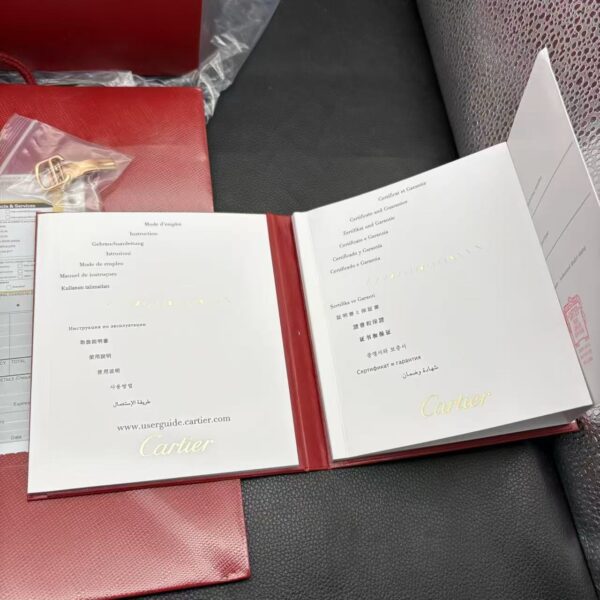 Mode d'emploi
Instruction
Gebrauchsanleitung
Istruzioni
Modo de empleo
Manuel de instruções
Kullanım talimatları
Инструкция по эксплуатации
取扱説明書
使用說明
使用说明
사용방법
طريقة الإستعمال
www.userguide.cartier.com
Cartier
Certificat et Garantie
Certificate and Guarantee
Zertifikat und Garantie
Certificato e Garanzia
Certificado y Garantía
Certificado e Garantia
Sertifika ve Garanti
証明書と保証書
證書和保證
证书和保证
증명서와 보증서
Сертификат и гарантия
شهادة وضمان
Cartier
cts & Services
TOTAL
Date